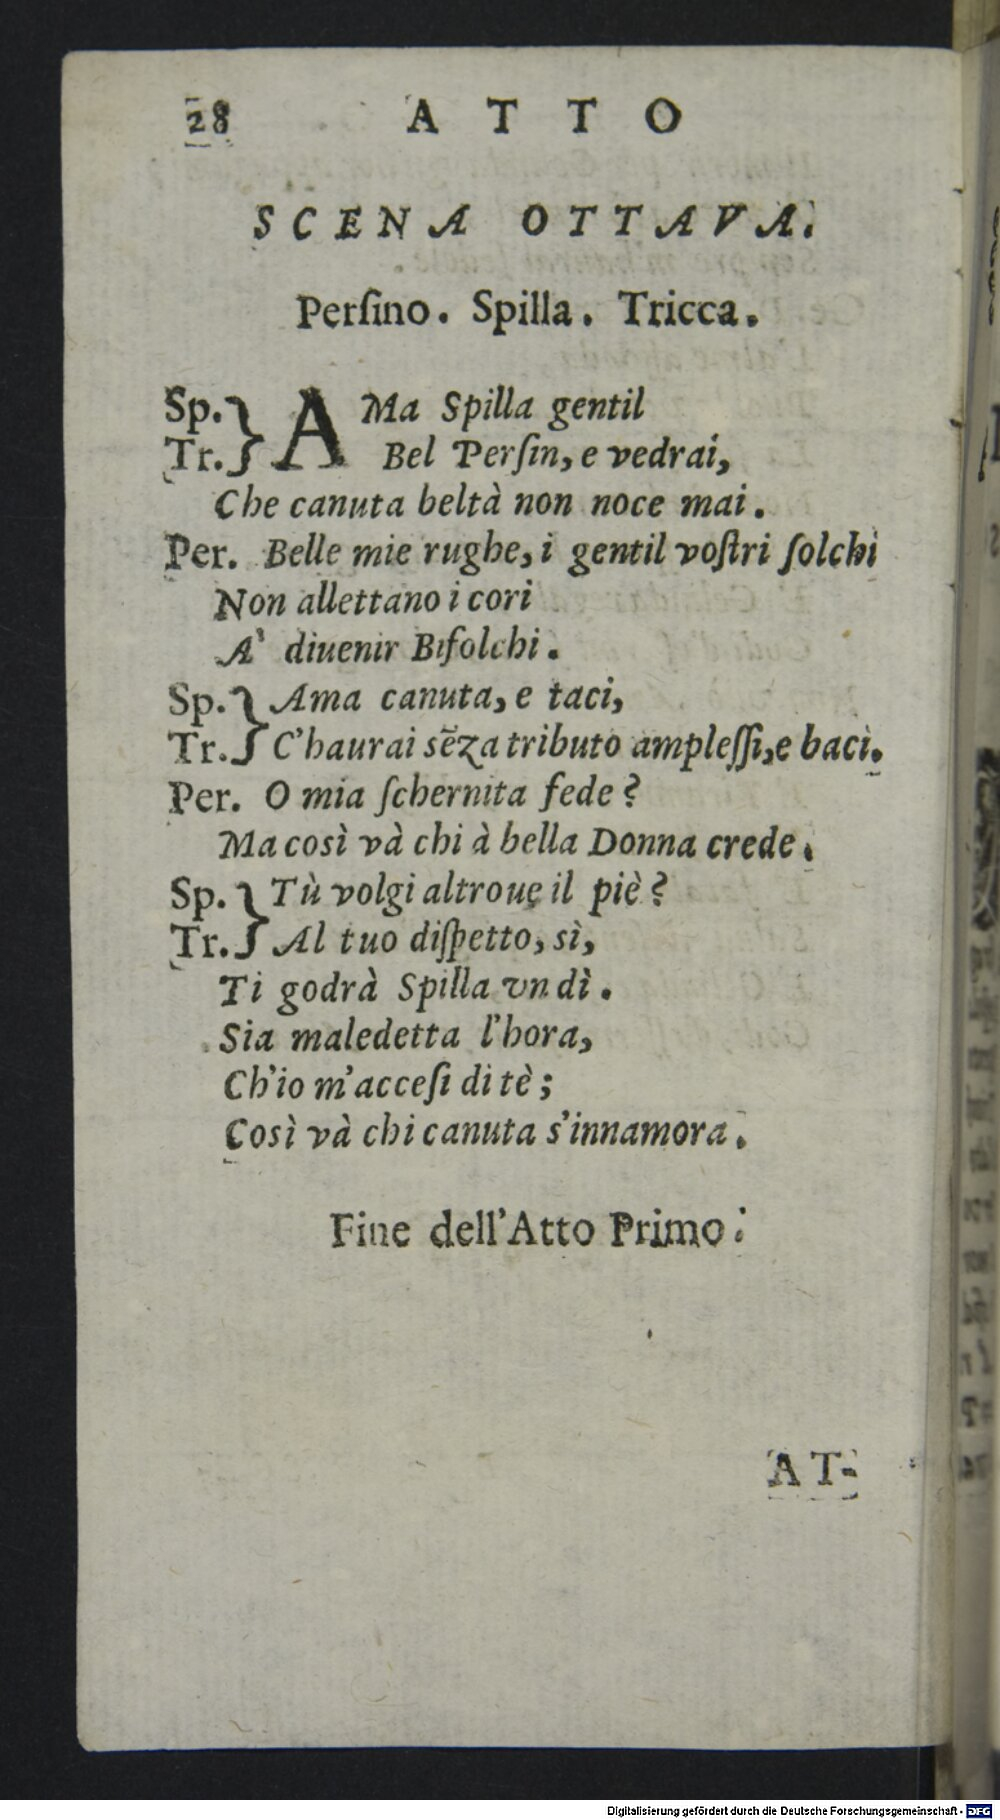 28 ATTO
SCENA OTTAVA.
Perſino. Spilla. Tricca.
Sp.} AMa Spilla gentil
Tr.} Bel Perſin, e vedrai,
Che canuta beltà non noce mai.
Per. Belle mie rughe, i gentil voſtri ſolchi
Non allettano i cori
A' diuenir Bifolchi.
Sp.} Ama canuta, e taci,
Tr.} C'haurai sẽza tributo ampleſſi, e baci.
Per. O mia ſchernita fede?
Ma così và chi à bella Donna crede.
Sp.} Tù volgi altroue il piè?
Tr.} Al tuo diſpetto, sì,
Ti godrà Spilla vn dì.
Sia maledetta l'hora,
Ch'io m'acceſi di tè;
Così và chi canuta s'innamora.
Fine dell'Atto Primo.
AT-
Digitalisierung gefördert durch die Deutsche Forschungsgemeinschaft - DFG